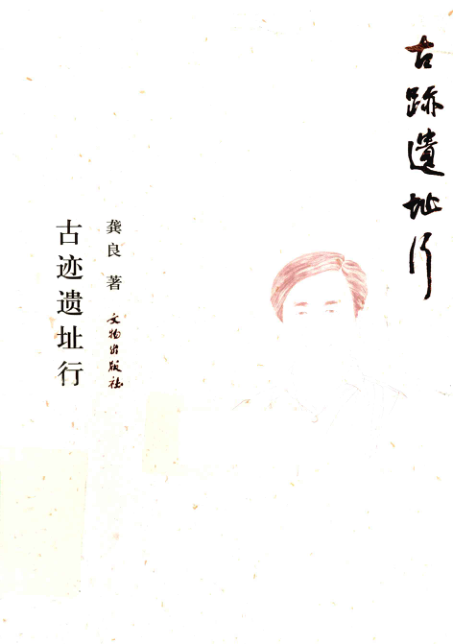 古跡遺址行
龚良 著
文物出版社
古迹遗址行